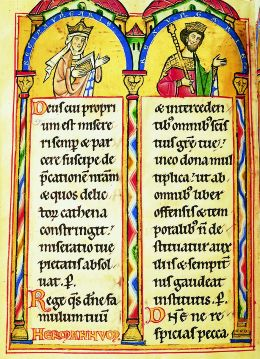 REGINA VNGARIE
REX VNGARIE
Deus cui propri
um est misere
ri semp & par
cere suscipe de
p̄cationem nr̄am
& quos delic
toꝝ cathena
constringit.
miseratio tue
pietatis absol
uat. p.
Rege qs̄ dn̄e fa
mulum tuū
HERMANNVM
& interceden
tibꝰ omnibꝰ scīs
tuis grē tue.
in eo dona mul
tiplica. ut ab
omnibꝰ liber
offensis & tem
poralibꝰ n̄ de
stituatur auxi
liis & sempit̄
nis gaudeat
institutis. p.
Dn̄e ne re
spicias pecca